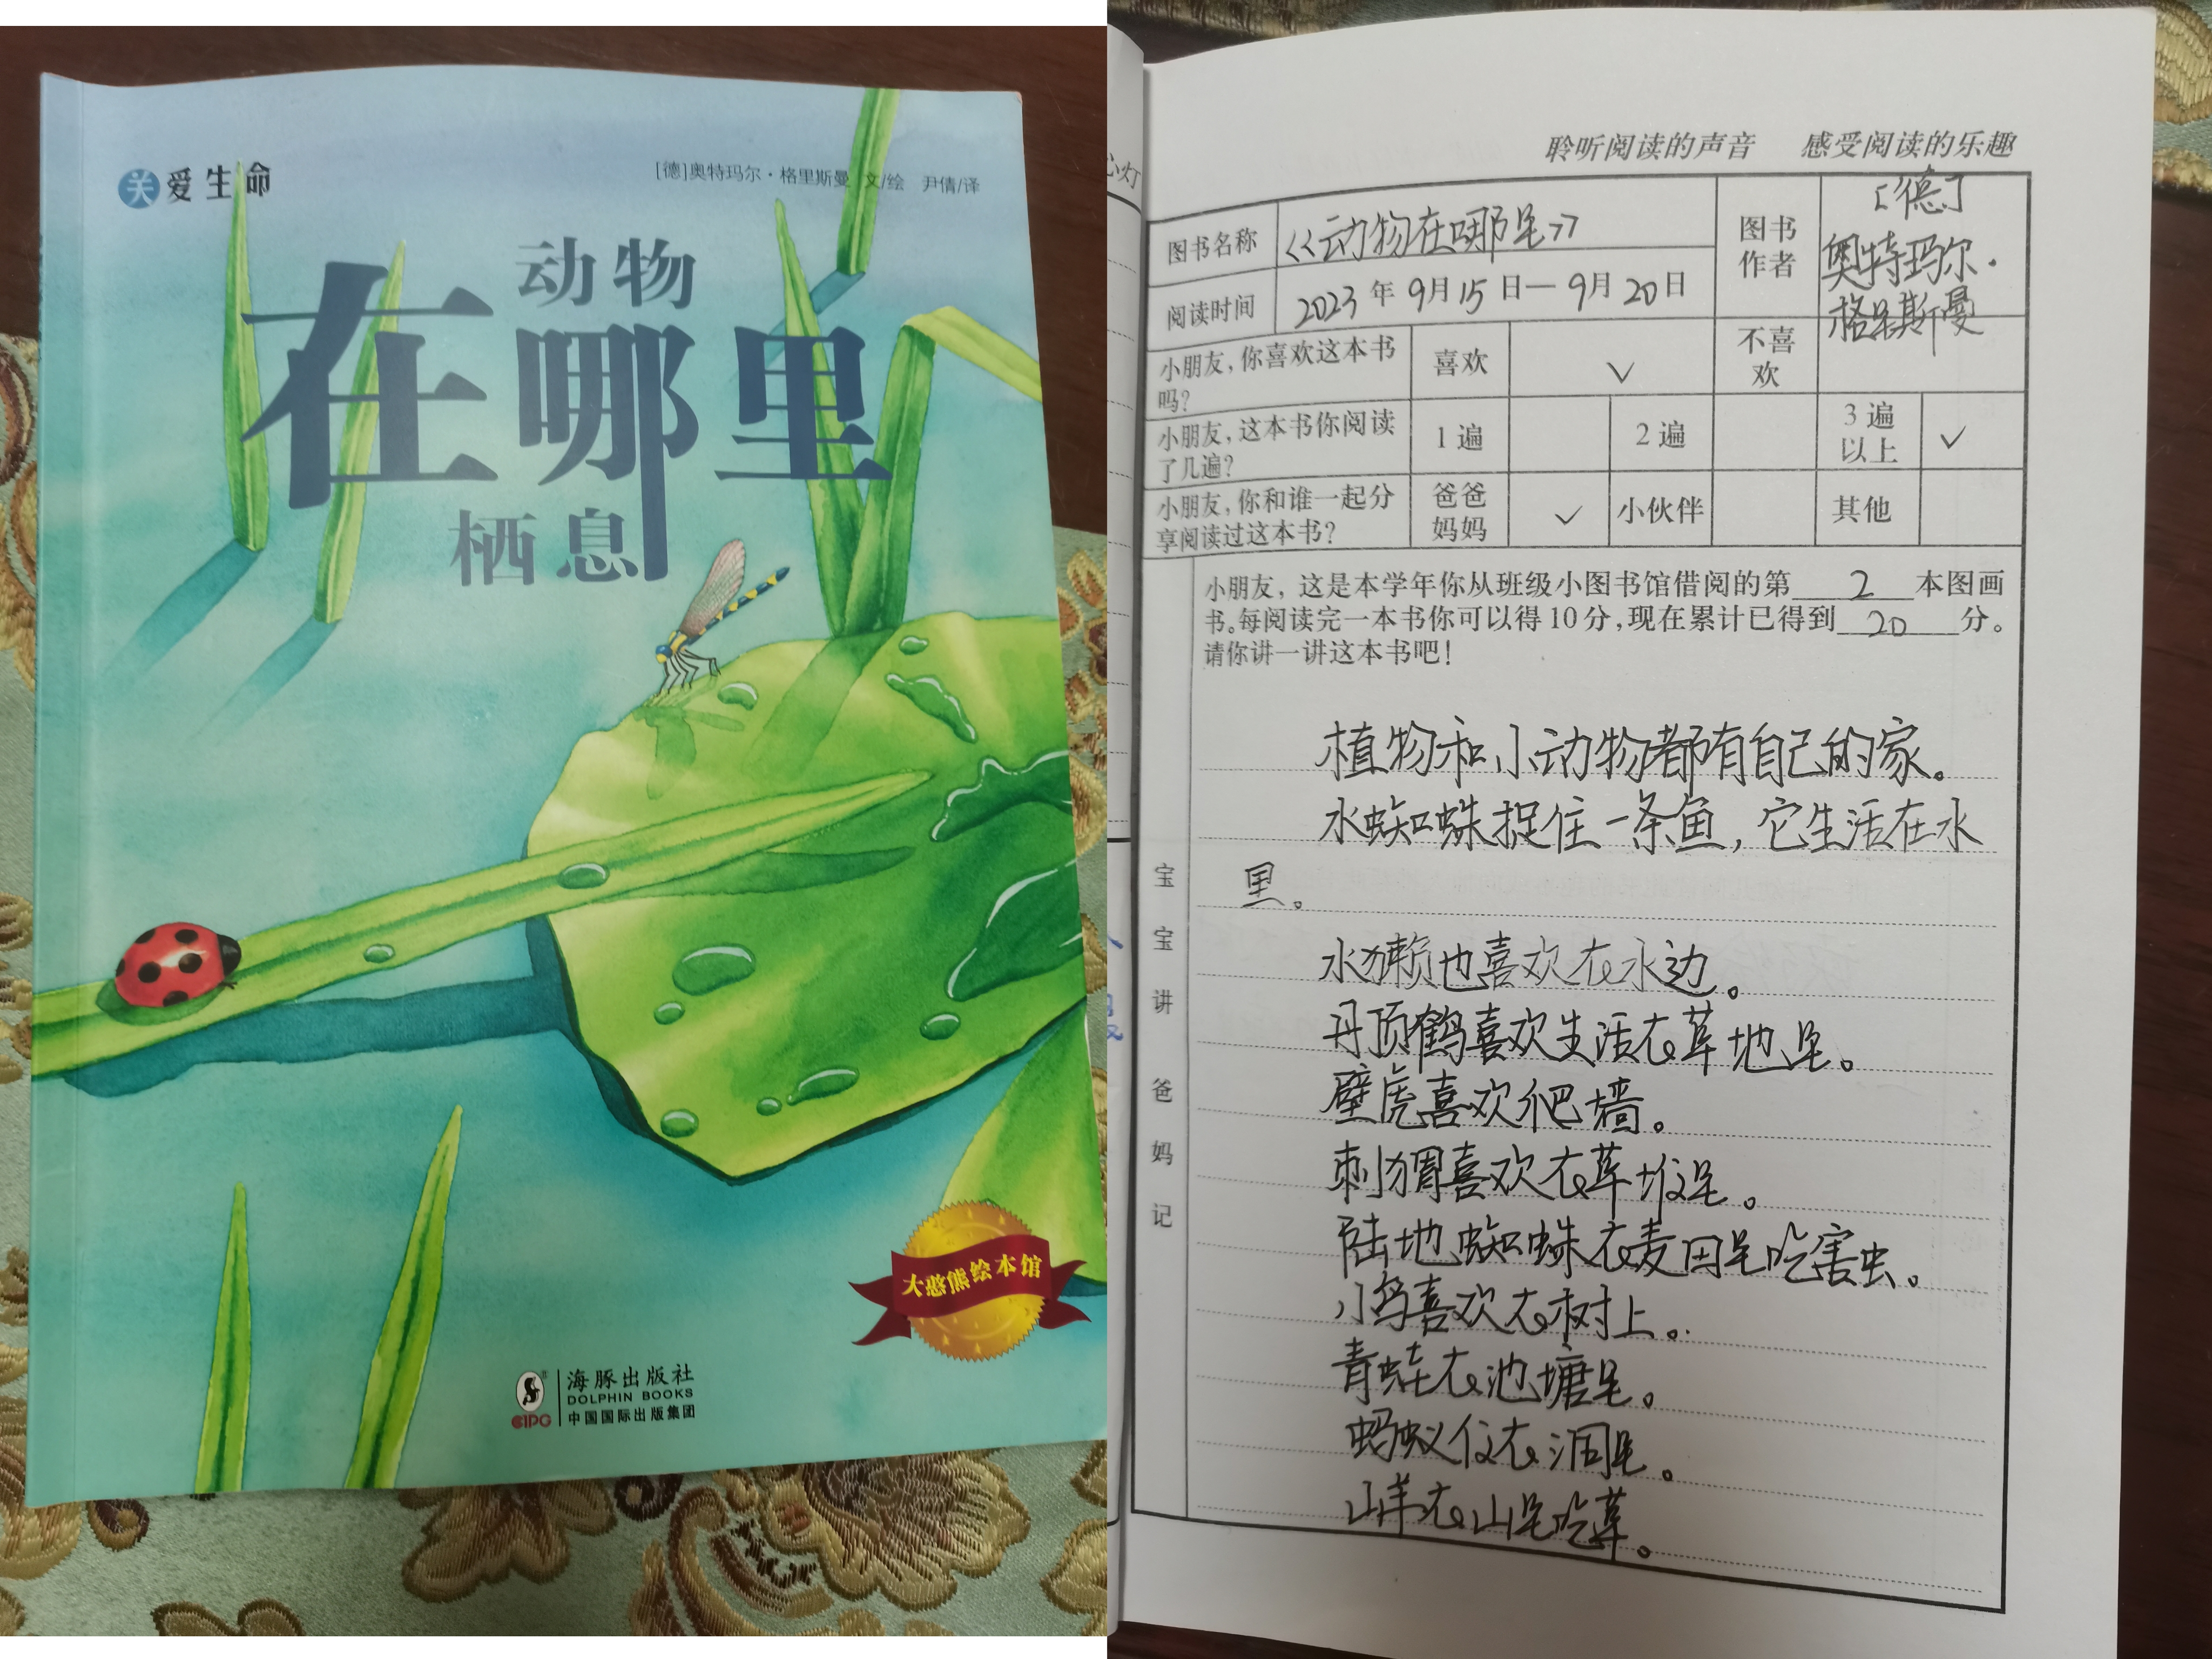 关爱生命
[德]奥特玛尔·格里斯曼 文/绘 尹倩/译
动物
在哪里
栖息
大憨熊绘本馆
海豚出版社
DOLPHIN BOOKS
CIPG
中国国际出版集团
心灯
聆听阅读的声音 感受阅读的乐趣
图书名称 《动物在哪里》 图书作者 [德]奥特玛尔·格里斯曼
阅读时间 2023年9月15日—9月20日
小朋友,你喜欢这本书吗? 喜欢 ✓ 不喜欢
小朋友,这本书你阅读了几遍? 1遍 2遍 3遍以上 ✓
小朋友,你和谁一起分享阅读过这本书? 爸爸妈妈 ✓ 小伙伴 其他
小朋友,这是本学年你从班级小图书馆借阅的第2本图画
书。每阅读完一本书你可以得10分,现在累计已得到20分。
请你讲一讲这本书吧!
宝宝讲 爸妈记
植物和小动物都有自己的家。
水蜘蛛捉住一条鱼,它生活在水
里。
水獭也喜欢在水边。
丹顶鹤喜欢生活在草地里。
壁虎喜欢爬墙。
刺猬喜欢在草堆里。
陆地蜘蛛在麦田里吃害虫。
小鸟喜欢在树上。
青蛙在池塘里。
蚂蚁住在洞里。
山羊在山里吃草。